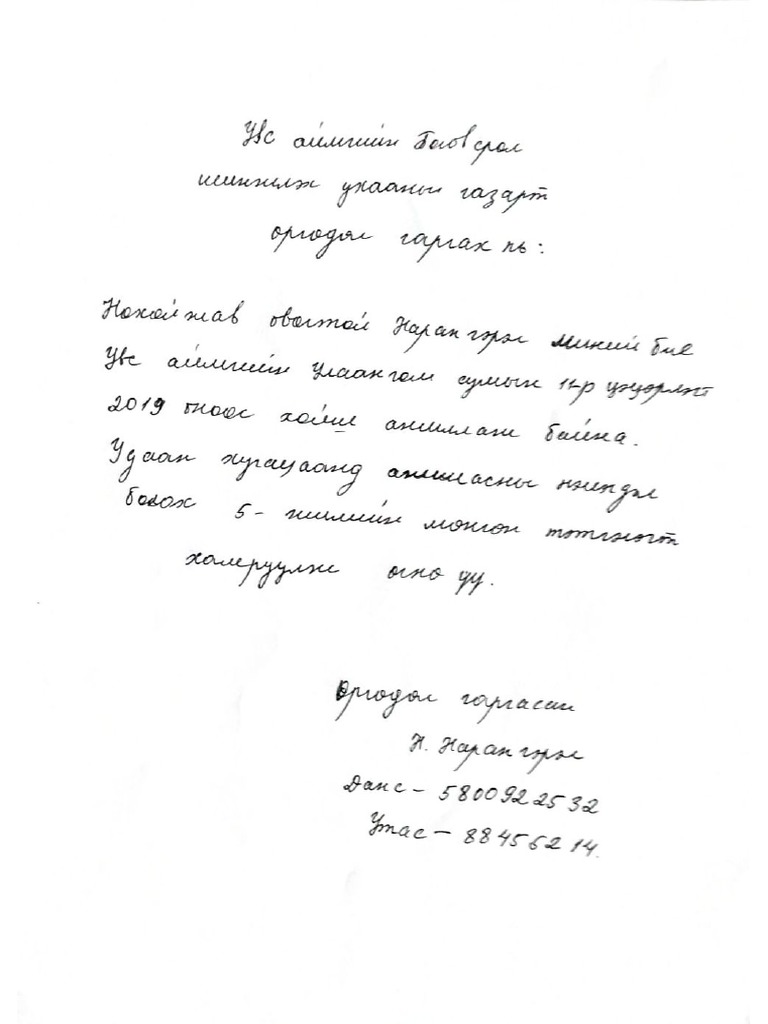 Увс аймгийн Боловсрол
шинжлэх ухааны газарт
оргодол гаргах нь:
Нохойжав овогтой Нарангэрэл миний бие
Увс аймгийн Улаангом сумын 11-р цэцэрлэгт
2019 оноос хойш ажиллаж байна.
Удаан хугацаанд ажилласны нэмэгдэл
болох 5-жилийн мөнгөн тэтгэмэгт
хамруулж огно уу.
Оргодол гаргасан
Н. Нарангэрэл
Данс - 5800922532
Утас - 88456214.